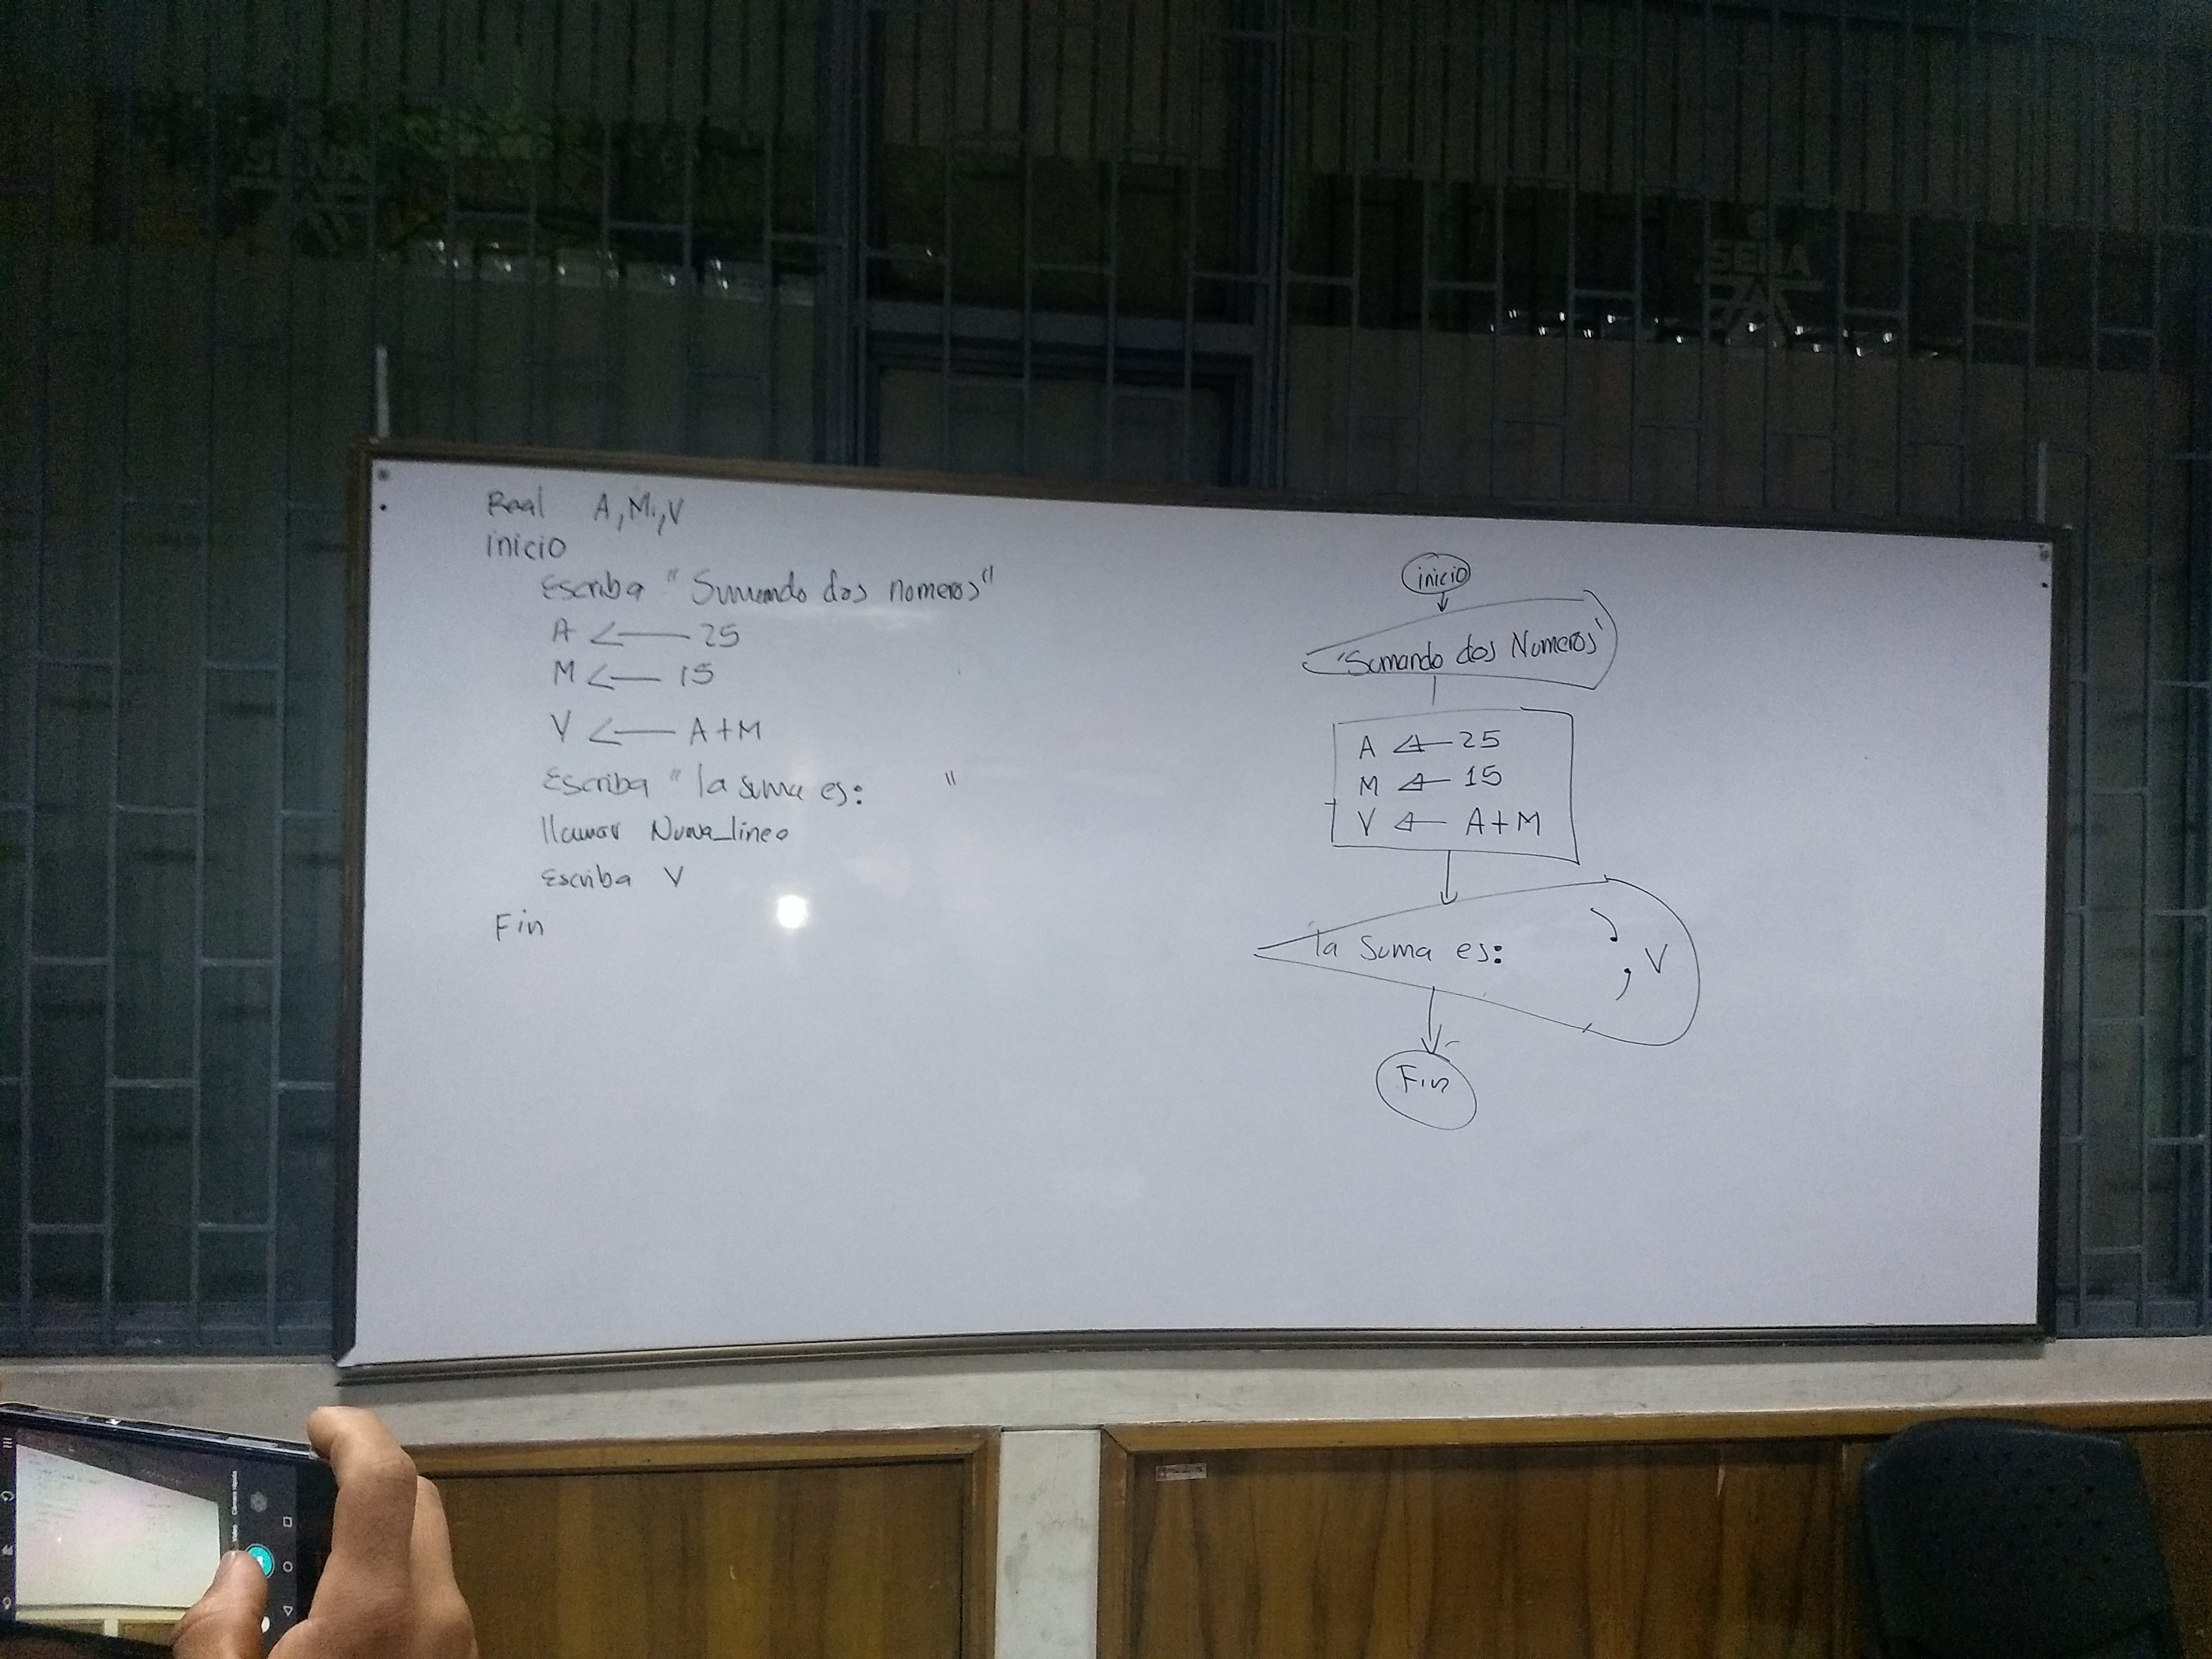 Real A, M, V
inicio
Escriba "Sumando dos numeros"
A ← 25
M ← 15
V ← A+M
Escriba "la suma es: "
llamar Nueva_linea
Escriba V
Fin
inicio
'Sumando dos Numeros'
A ← 25
M ← 15
V ← A+M
'la suma es: ', V
Fin
SENA
SENA